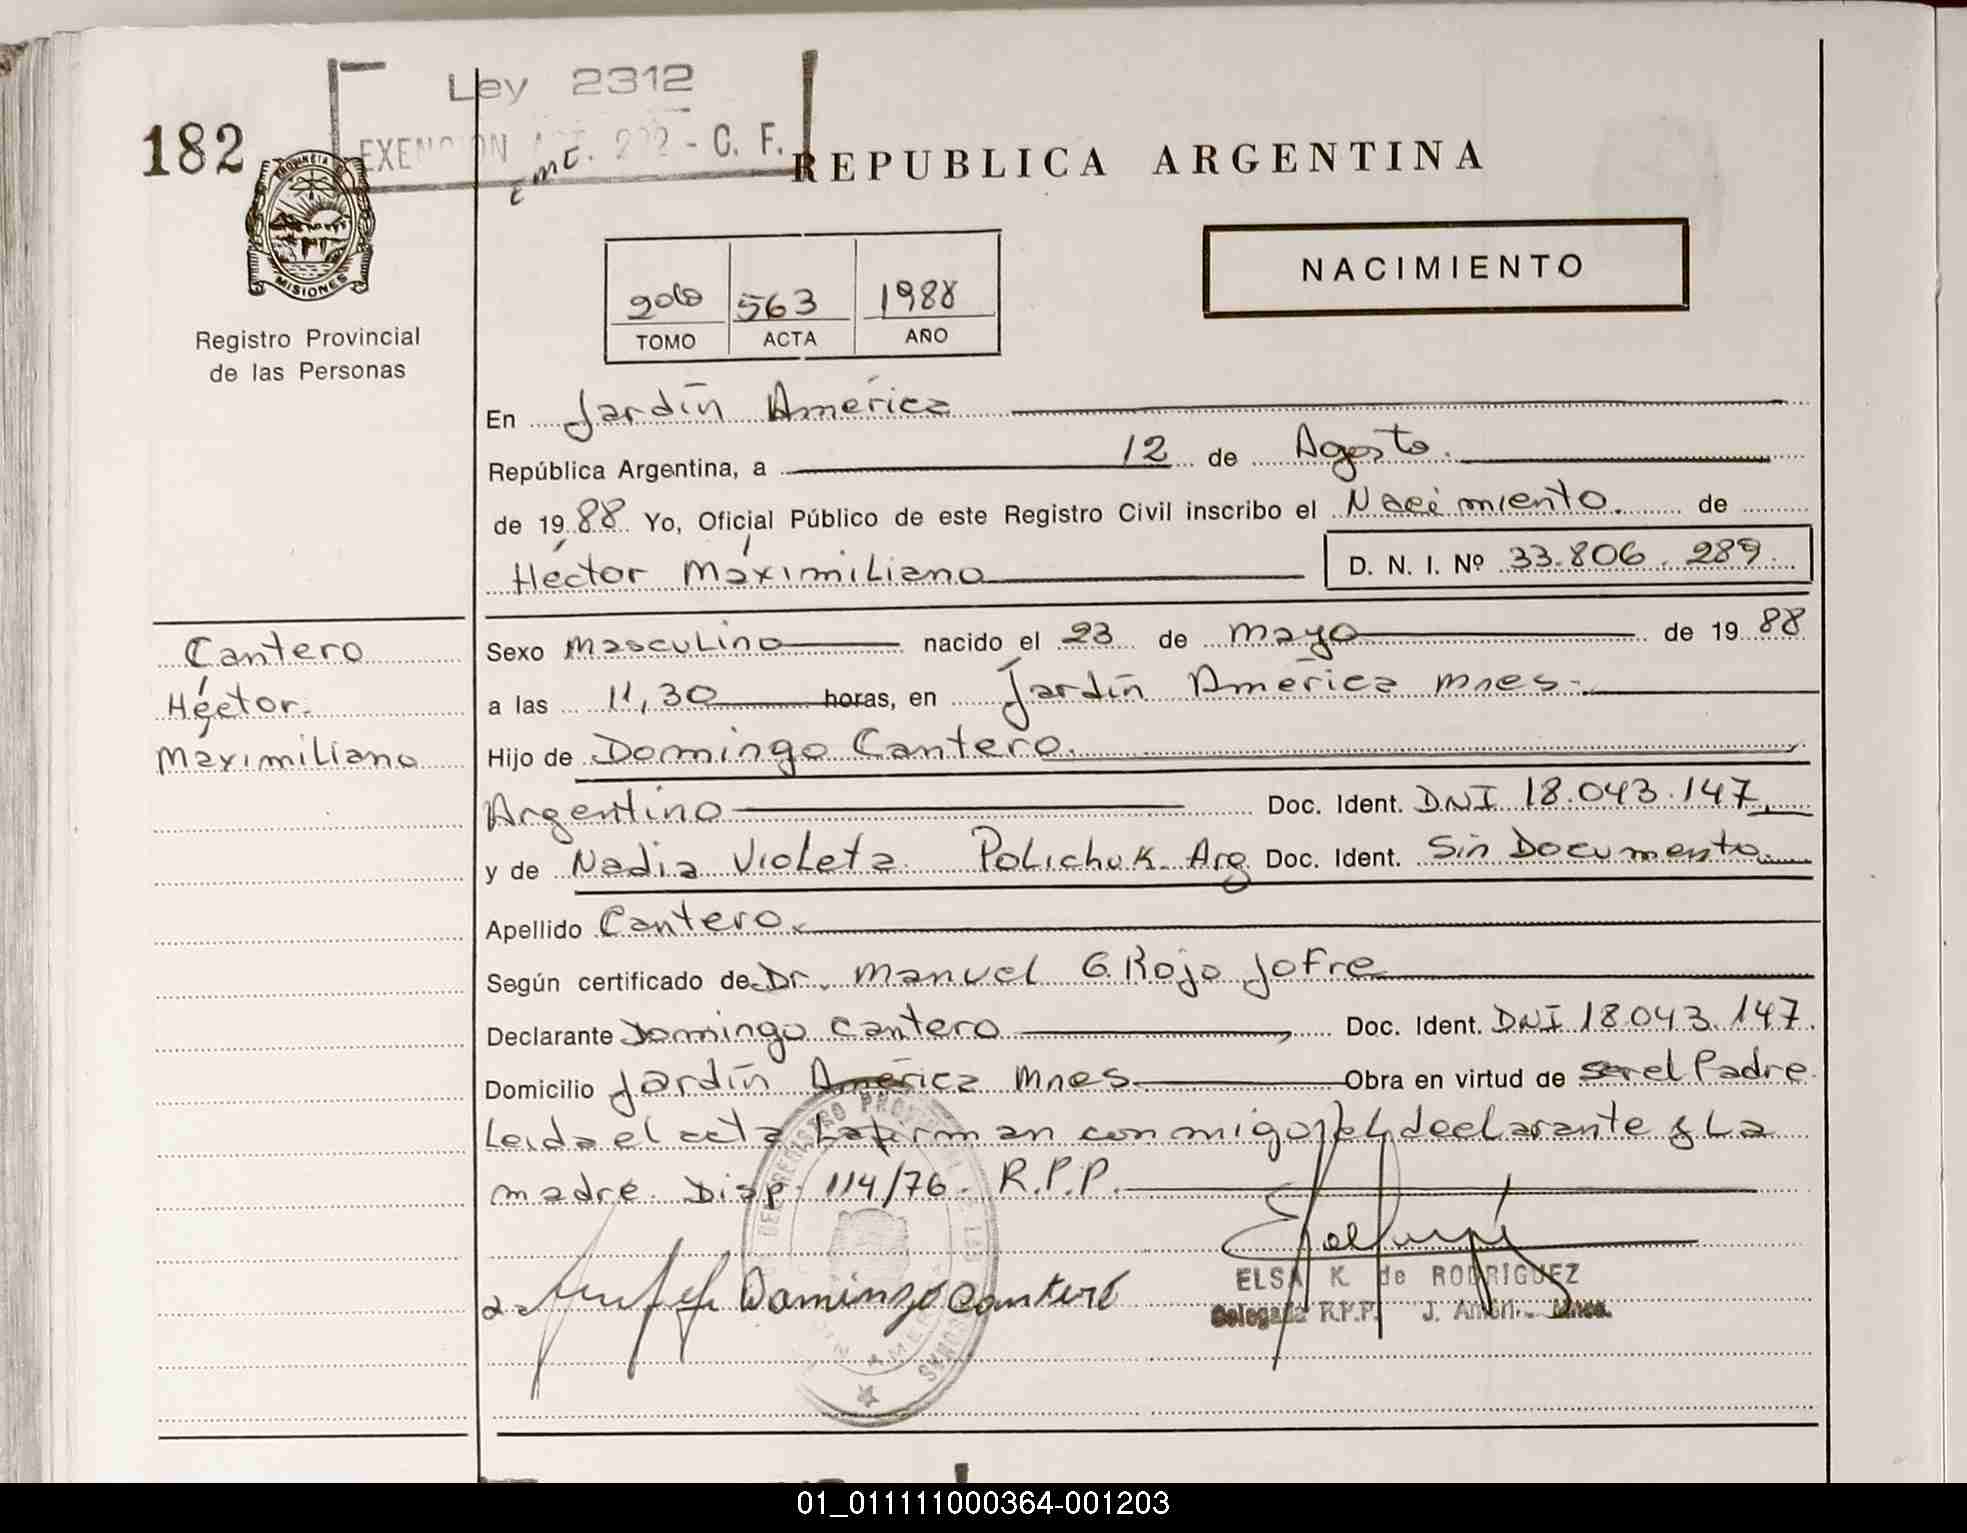 Ley 2312
182
EXENCION ART. 222 - C. F.
REPUBLICA ARGENTINA
MISIONES
NACIMIENTO
563 1988
TOMO ACTA AÑO
Registro Provincial
de las Personas
En Jardín América
República Argentina, a 12 de Agosto.
de 1988 Yo, Oficial Público de este Registro Civil inscribo el Nacimiento. de
Héctor Máximiliano D. N. I. Nº 33.806.289.
Cantero
Héctor.
Maximiliano
Sexo masculino nacido el 23 de mayo de 1988
a las 11,30 horas, en Jardín América Mnes.
Hijo de Domingo Cantero.
Argentino Doc. Ident. DNI 18.043.147
y de Nadia Violeta Polichuk Arg Doc. Ident. Sin Documento.
Apellido Cantero.
Según certificado de Dr. Manuel G. Rojo Jofre
Declarante Domingo Cantero Doc. Ident. DNI 18.043.147.
Domicilio Jardín América Mnes Obra en virtud de ser el Padre
Leida el acta La firman conmigo el declarante y La
madre. Disp. 114/76. R.P.P.
Domingo Cantero
ELSA K. de RODRIGUEZ
Delegada R.P.P. J. Amér. Mnes.
01_011111000364-001203